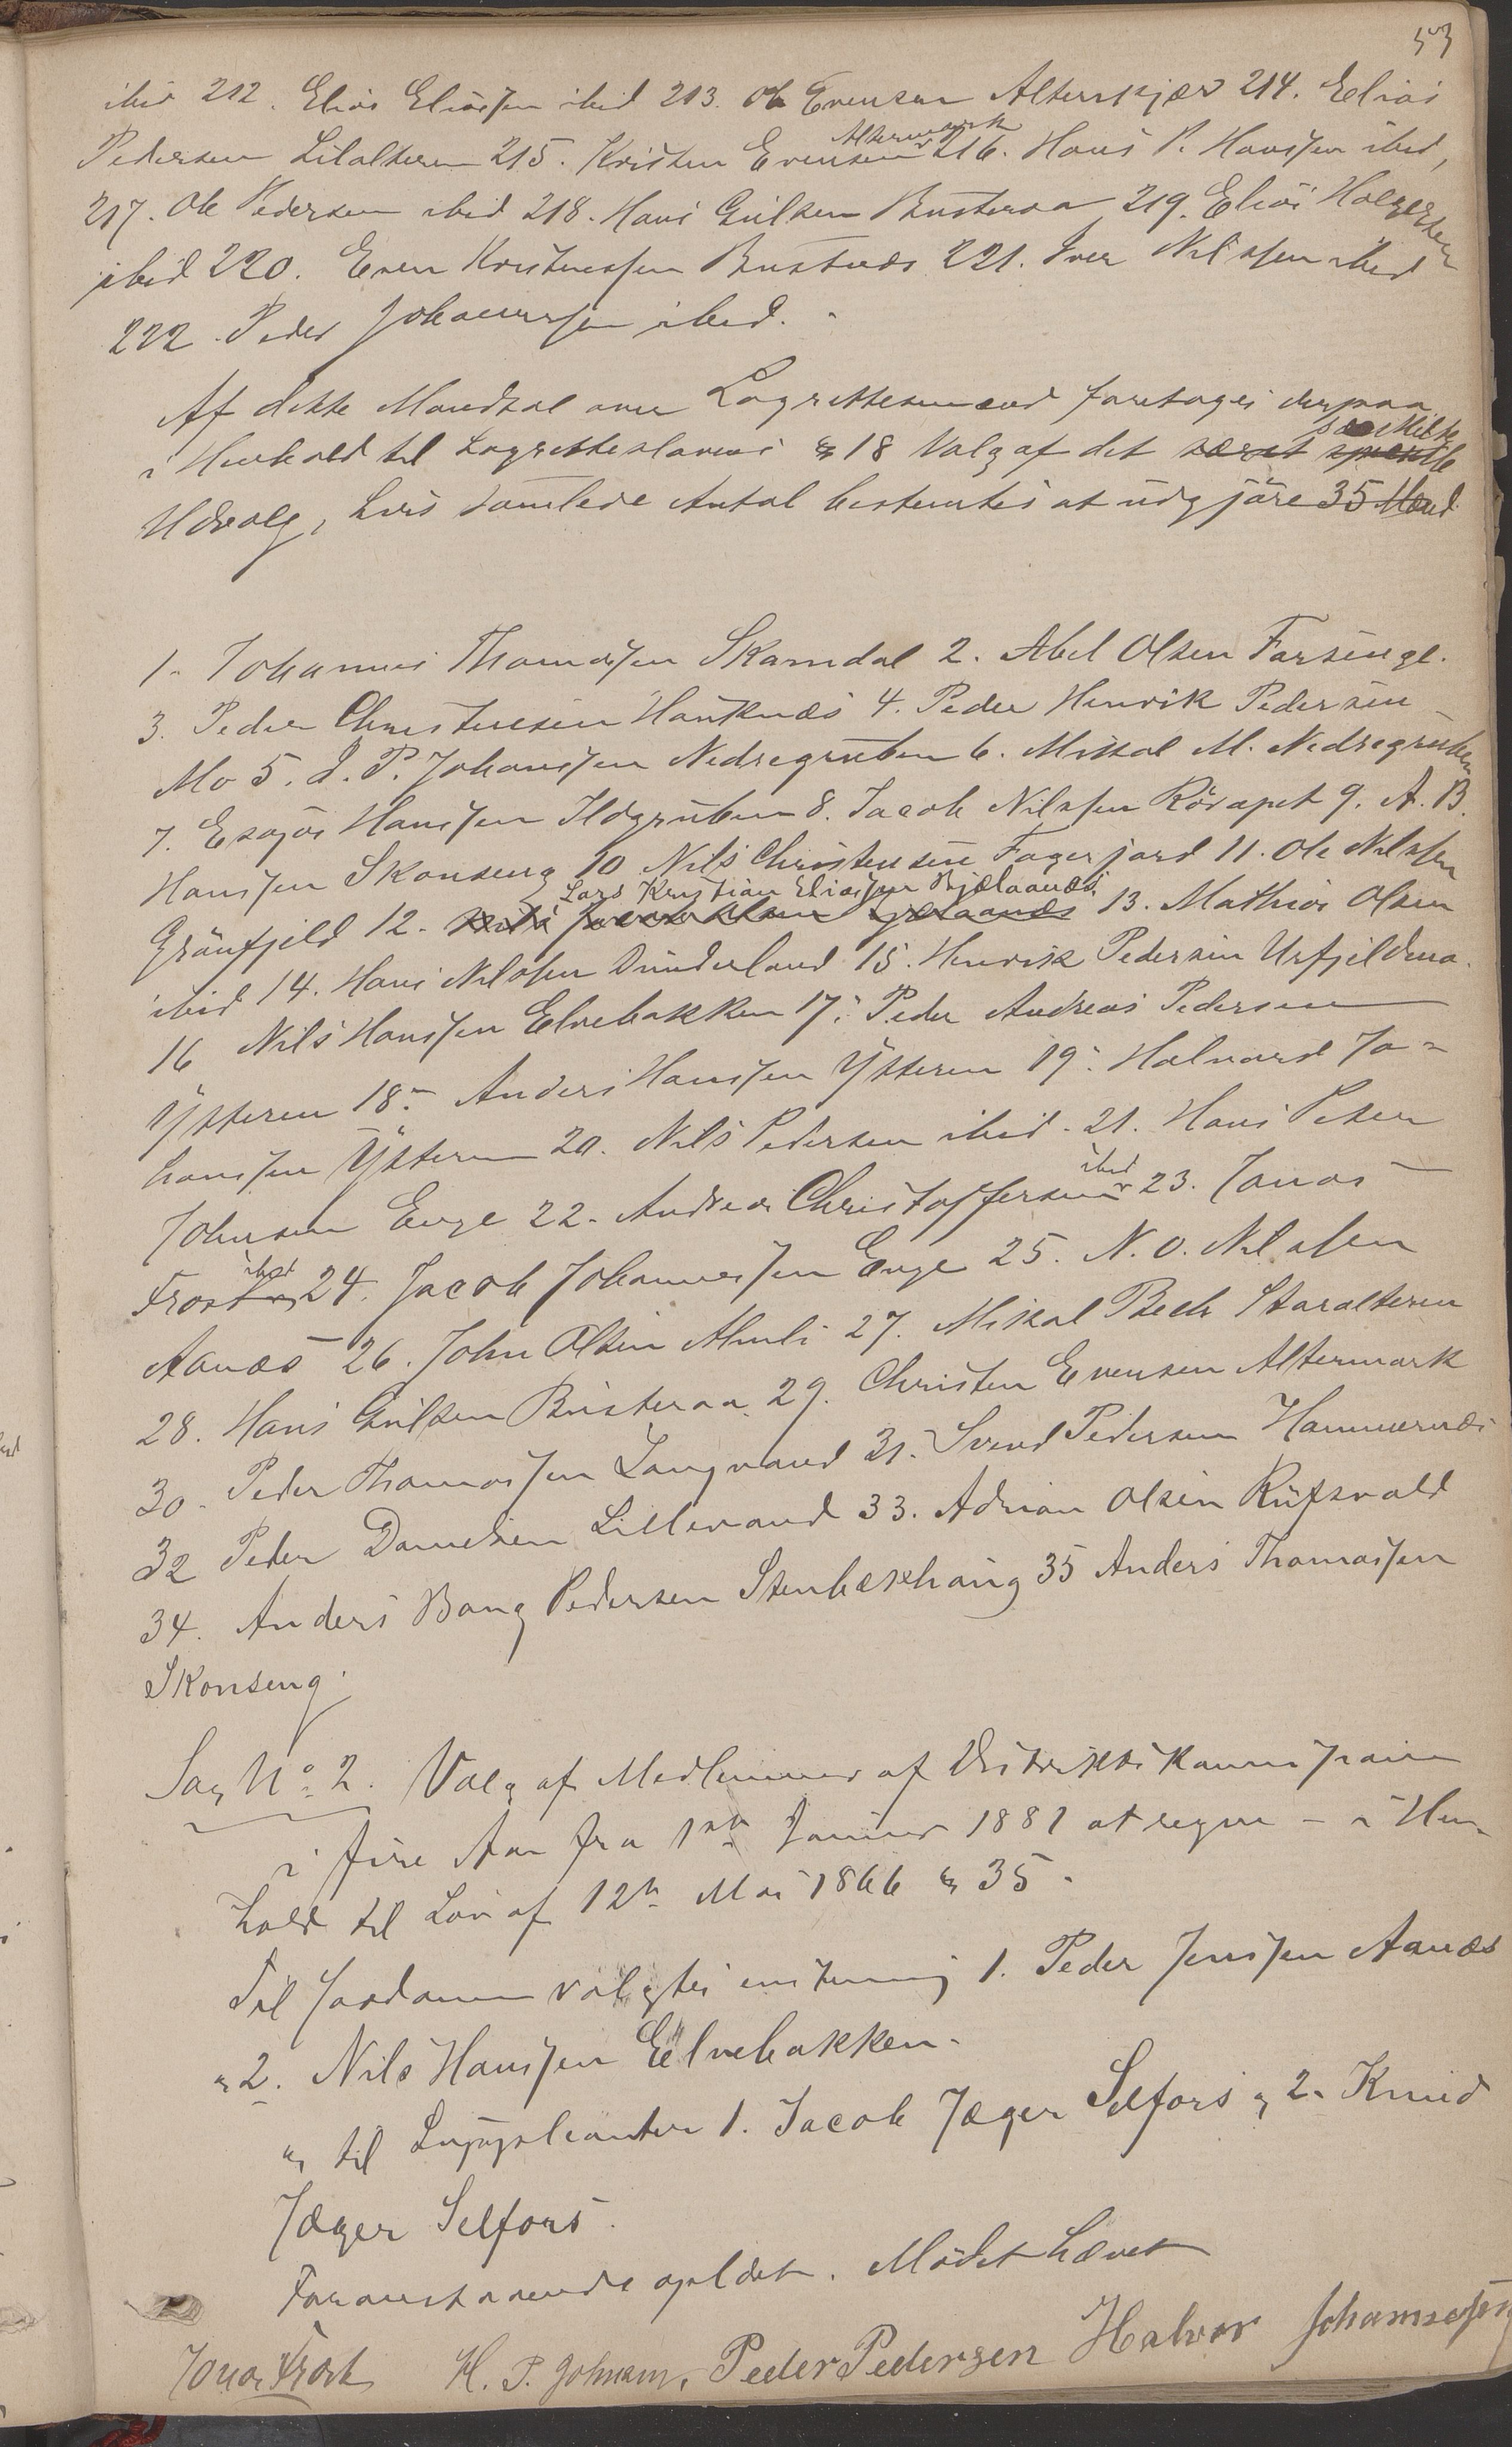 53
ibid 212. Elias Eliassen ibid 213. Ole Evensen Alterskjær 214. Elias
Pedersen Lilalteren 215. Kristen Evensen Altermark 216. Hans P. Hanssen ibid,
217. Ole Pedersen ibid 218. Hans Gulsen Busteraa 219. Elias Holgersen
ibid 220. Even Kristensen Bustnæs 221. Iver Nilssen ibid
222. Peder Johannessen ibid.
Af dette Mandtal over Lagrettesmænd foretoges derpaa
i Henhold til Lagretteslovens § 18 Valg af det særskilte
Udvalg, hvis samlede Antal bestemtes at udgjöre 35 Mænd
1. Johannes Thomassen Skamdal 2. Abel Olsen Farsengl.
3. Peder Christensen Hauknæs 4. Peder Henrik Pedersen
Mo 5. J. P. Johanssen Nedregruben 6. Mikal M. Nedregruben
7. Esajas Hanssen Ildgruben 8. Jacob Nilssen Rösapet 9. A. B.
Hanssen Skonseng 10 Nils Christensen Fagerjord 11. Ole Nilssen
Grönfjeld 12. Lars Kristian Eliassen Bjelaanæs 13. Mathias Olsen
ibid 14. Hans Nilssen Dunderland 15. Henrik Pedersen Urfjeldmo.
16 Nils Hanssen Elvebakken 17. Peder Andreas Pedersen
Ytteren 18. Anders Hanssen Ytteren 19. Halvard Jo-
hanssen Ytteren 20. Nils Pedersen ibid. 21. Hans Peter
Johnsen Enge 22. Andreas Christoffersen ibid 23. Jonas
Frost ibid 24. Jacob Johannessen Enge 25. N. O. Nilssen
Aanæs 26. John Olsen Almli 27. Mikal Bech Storalteren
28. Hans Gulsen Busteraa 29. Christen Evensen Altermark
30. Peder Thomassen Langvand 31. Svend Pedersen Hammernæs
32 Peder Danielsen Lillevand 33. Adrian Olsen Rufsvold
34. Anders Bang Pedersen Stenbækhaug 35 Anders Thomassen
Skonseng.
Sag No. 2. Valg af Medlemmer af Distriktskommission
i fire Aar fra 1ste Januar 1881 at regne - i Hen-
hold til Lov af 12te Mai 1866 § 35.
Til Formænd valgtes enstemmig 1. Peder Jenssen Aanæs
og 2. Nils Hanssen Elvebakken.
og til Suppleanter 1. Jacob Jæger Selfors og 2. Knud
Jæger Selfors.
Foranstaaende oplæst. Mödet hævet
Jonas Frost H. P. Johnsen, Peder Pedersen Halvor Johannessen